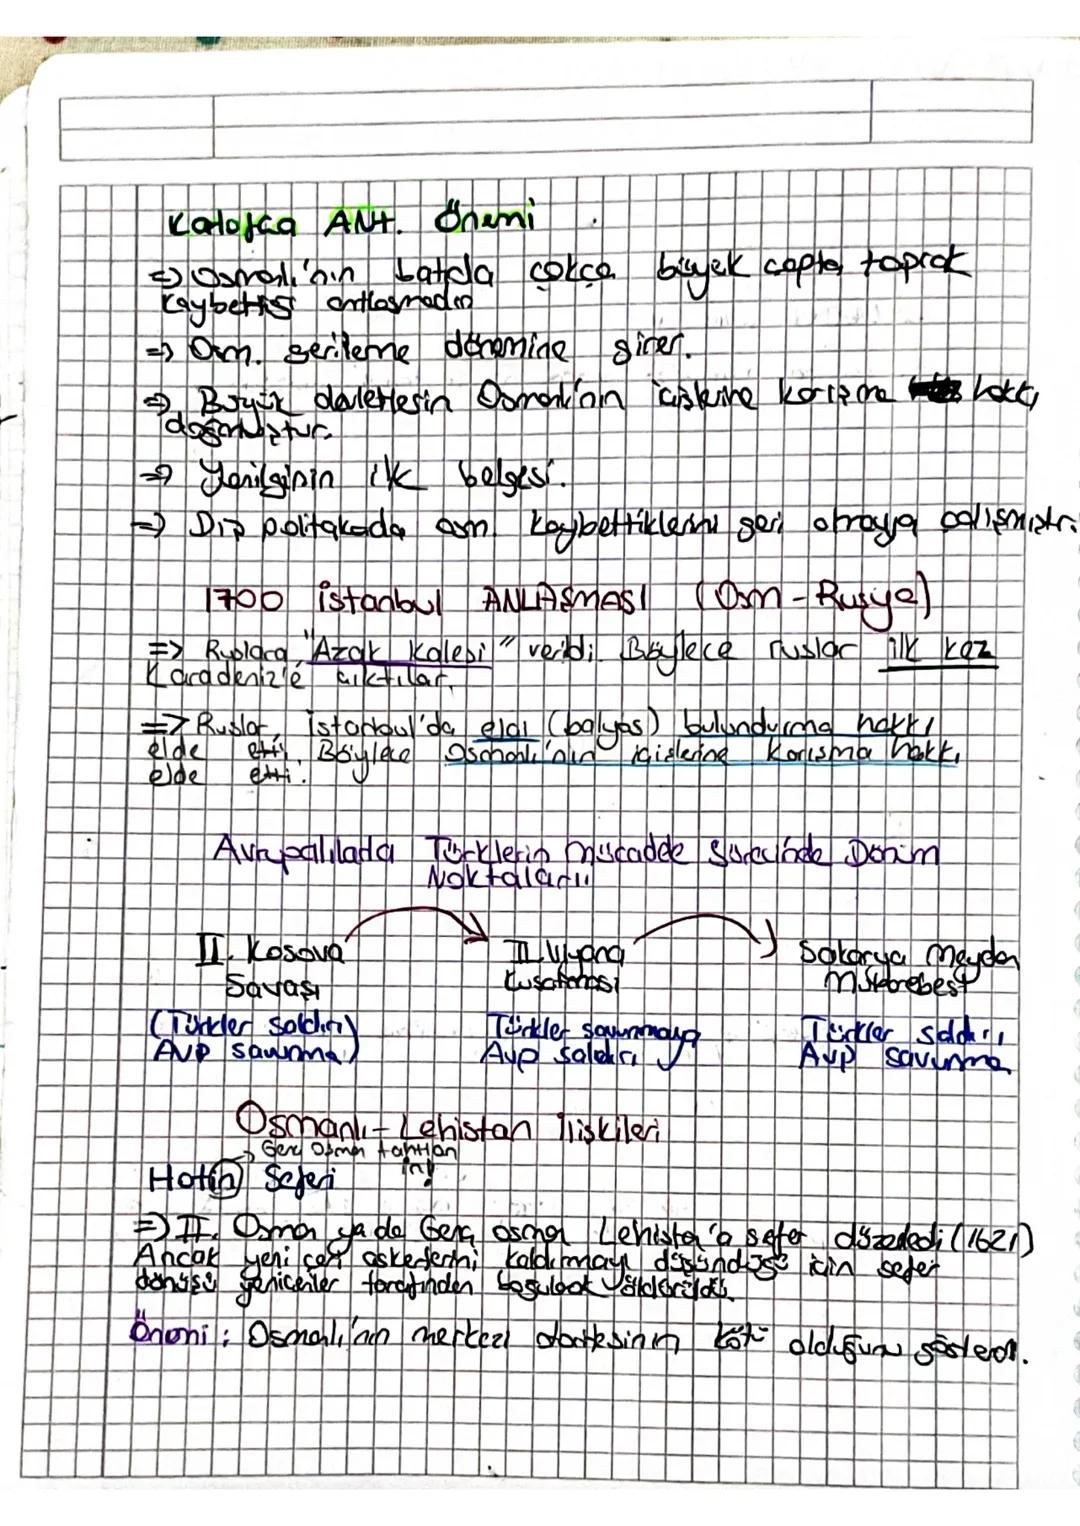 Karlofça ANt. Önemi
=> Osmanlı'nın batıda çokça büyük çapta toprak
kaybettiği antlaşmadır
=> Osm. gerileme dönemine girer.
=> Büyük devletlerin Osmanlı'nın içişlerine karışma hakkı
doğmuştur.
=> Yenilginin ilk belgesi.
=> Dış politikada osm. kaybettiklerini geri almaya çalışmıştır.
1700 İstanbul ANLAŞMASI (Osm - Rusya)
=> Ruslara "Azak Kalesi" verildi. Böylece ruslar ilk kez
Karadeniz'e çıktılar.
=> Ruslar, İstanbul'da elçi (balyos) bulundurma hakkı
elde etti. Böylece Osmanlı'nın içişlerine karışma hakkı
elde etti.
Avrupalılarla Türklerin mücadele Sürecinde Dönüm
Noktaları
II. Kosova
Savaşı
(Türkler saldırı
Avp savunma)
II. Viyana
Kuşatması
Türkler savunmaya
Avp saldırı
Sakarya Meydan
Muharebesi
Türkler saldırı
Avp savunma
Osmanlı - Lehistan İlişkileri
Genç Osman tahttan
in!
Hotin Seferi
=> II. Osman ya da Genç osman Lehistan'a sefer düzenledi (1621)
Ancak yeni çeri askerlerini kaldırmayı düşündüğü için sefer
dönüşü yeniçeriler tarafından boğularak öldürüldü.
Önemi : Osmanlı'nın merkezi otoritesinin kötü olduğunu gösterir.